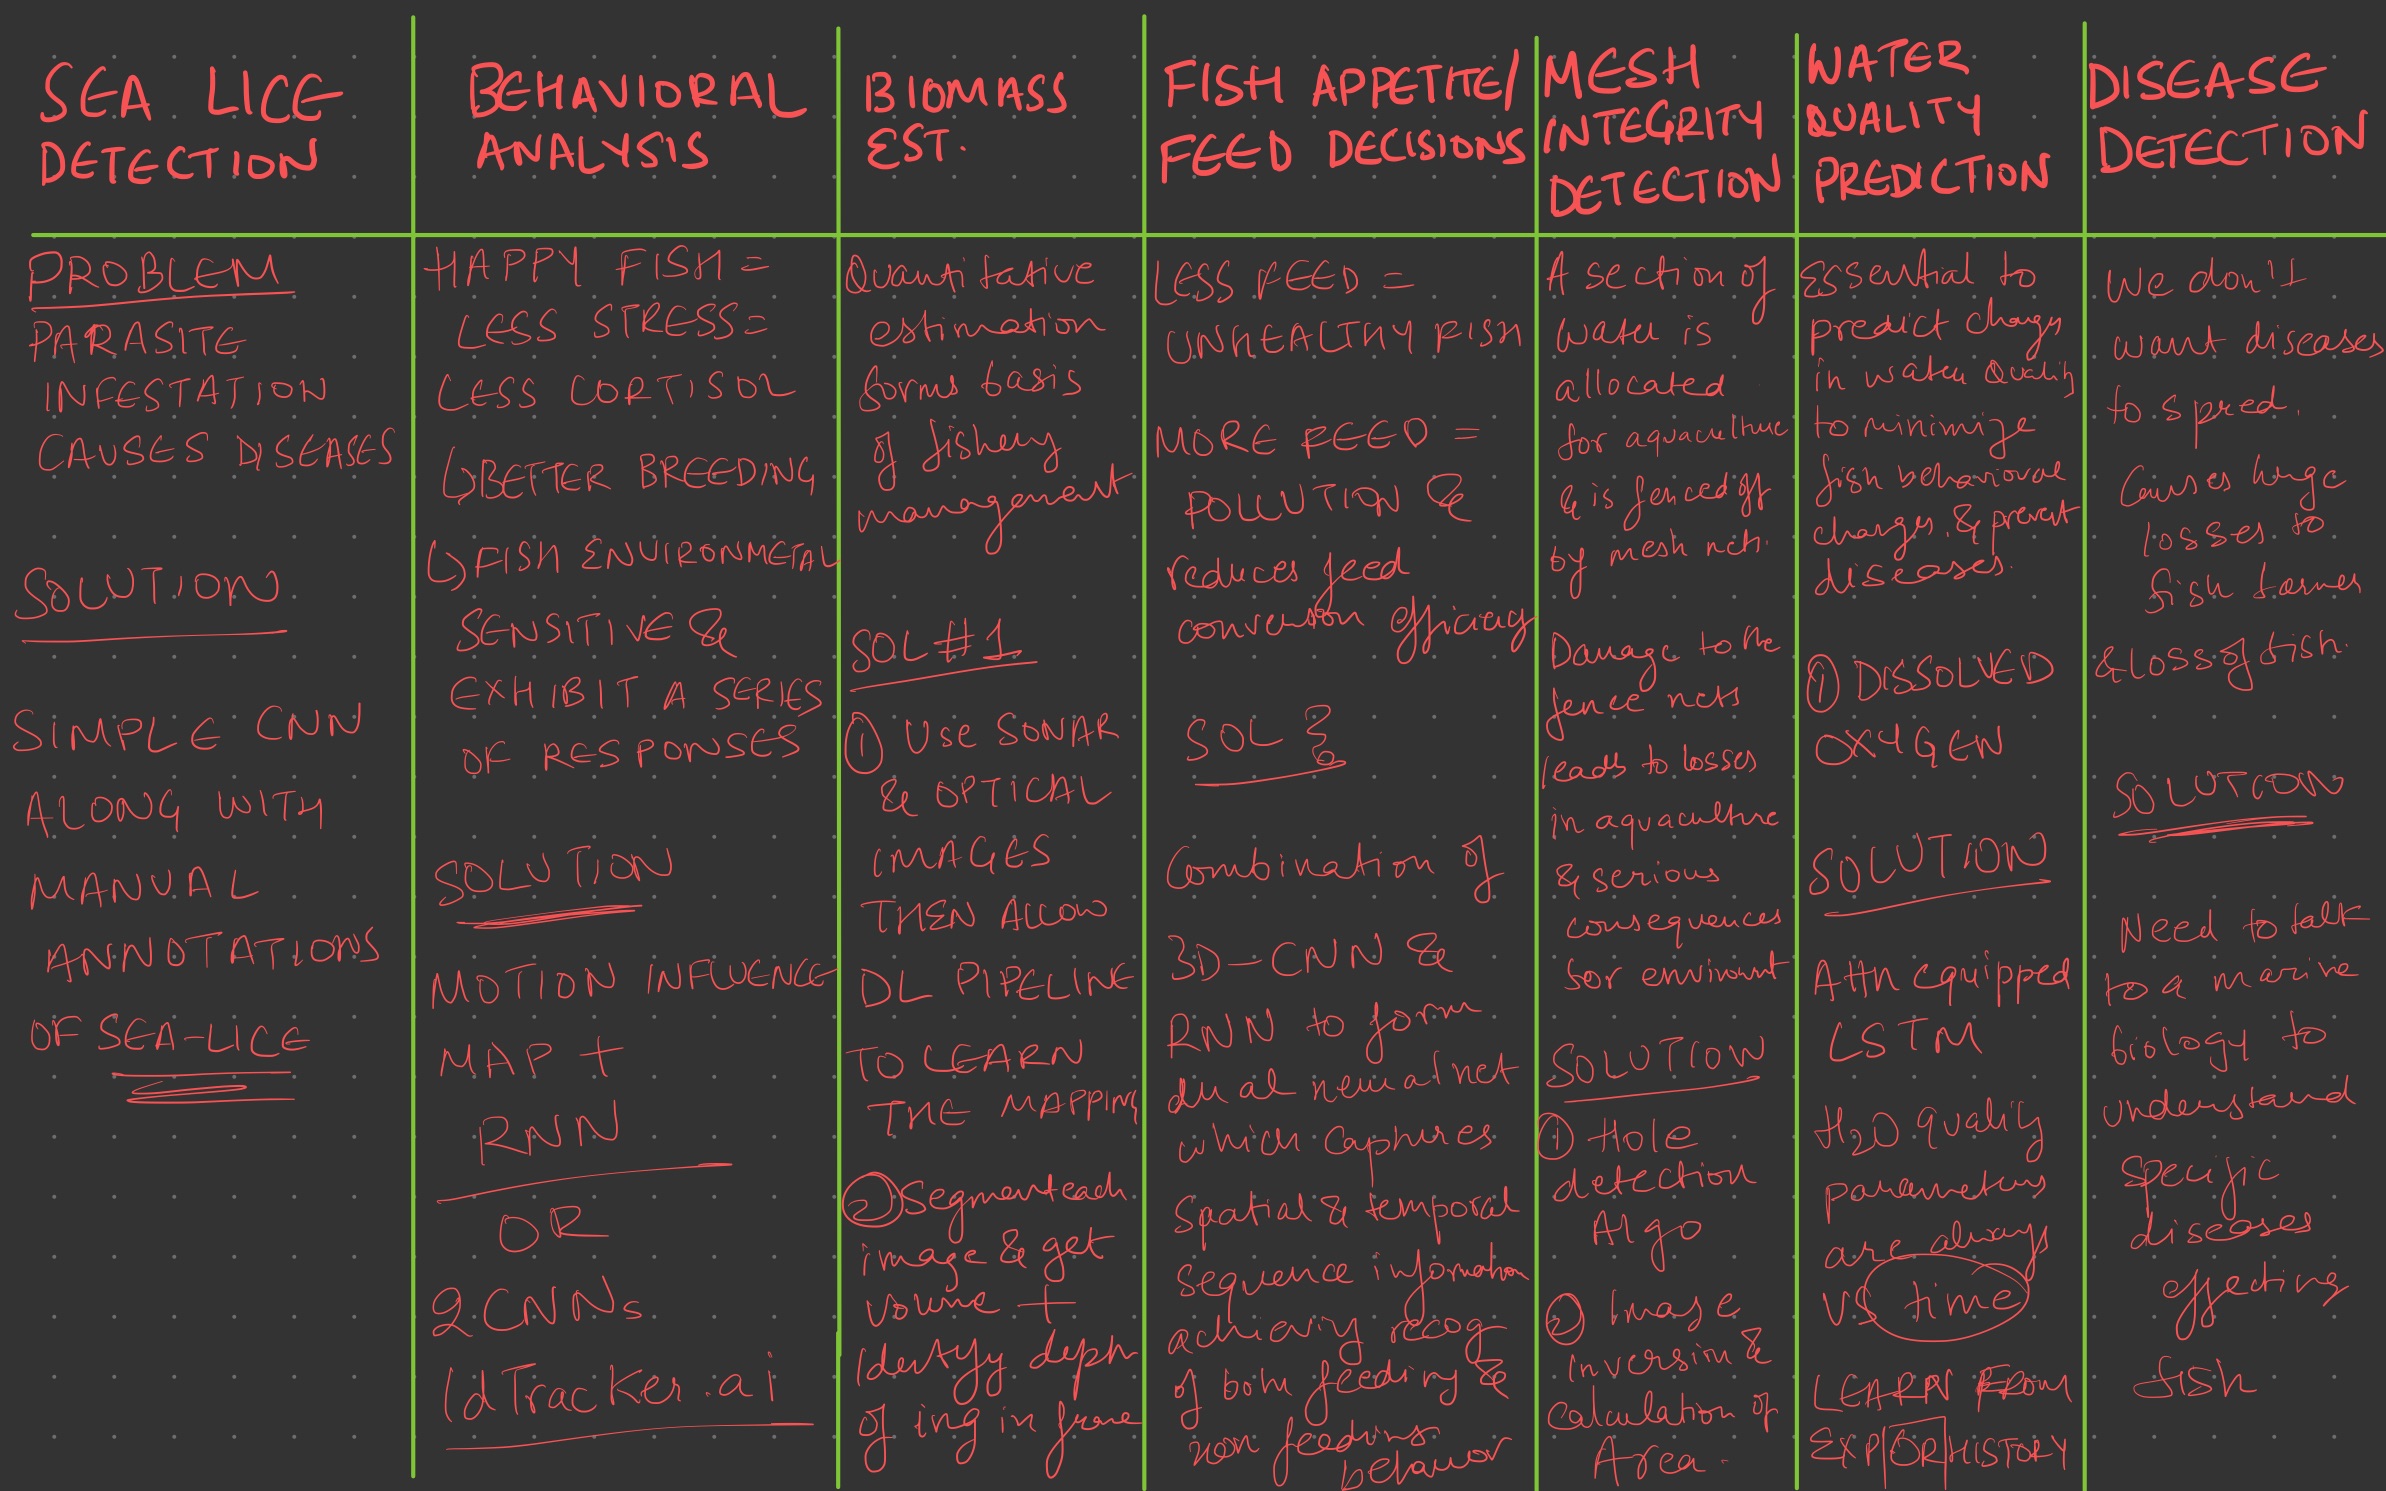 SEA LICE
DETECTION
PROBLEM
PARASITE
INFESTATION
CAUSES DISEASES
SOLUTION
SIMPLE CNN
ALONG WITH
MANUAL
ANNOTATIONS
OF SEA-LICE
BEHAVIORAL
ANALYSIS
HAPPY FISH =
LESS STRESS =
LESS CORTISOL
↳ BETTER BREEDING
↳ FISH ENVIRONMETAL
SENSITIVE &
EXHIBIT A SERIES
OF RESPONSES
SOLUTION
MOTION INFLUENCE
MAP +
RNN
OR
2 CNNs
IdTracker.ai
BIOMASS
EST.
Quantitative
estimation
forms basis
of fishery
management
SOL #1
① USE SONAR
& OPTICAL
IMAGES
THEN ALLOW
DL PIPELINE
TO LEARN
THE MAPPING
② Segment each
image & get
volume +
Identify depth
of img in frame
FISH APPETITE/
FEED DECISIONS
LESS FEED =
UNHEALTHY FISH
MORE FEED =
POLLUTION &
reduces feed
conversion efficiency
SOL
Combination of
3D-CNN &
RNN to form
dual neural net
which captures
spatial & temporal
sequence information
achieving recog
of both feeding &
non feeding
behavior
MESH
INTEGRITY
DETECTION
A section of
water is
allocated
for aquaculture
& is fenced off
by mesh nets.
Damage to the
fence nets
leads to losses
in aquaculture
& serious
consequences
for environment
SOLUTION
① Hole
detection
Algo
② Image
inversion &
Calculation of
Area.
WATER
QUALITY
PREDICTION
Essential to
predict changes
in water quality
to minimize
fish behavioral
changes & prevent
diseases.
① DISSOLVED
OXYGEN
SOLUTION
Attn equipped
LSTM
H2O quality
parameters
are always
VS time
LEARN FROM
EXP/OR/HISTORY
DISEASE
DETECTION
We don't
want diseases
to spred.
Causes huge
losses to
fish farmer
& loss of fish.
SOLUTION
Need to talk
to a marine
biology to
understand
specific
diseases
effecting
fish